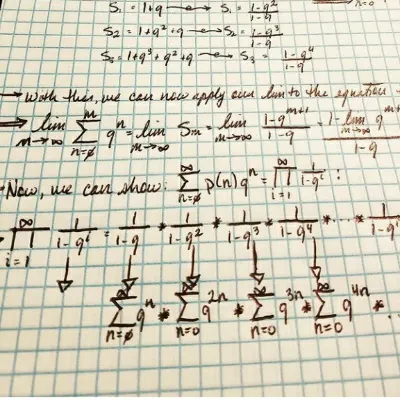 S₁ = 1+q → S₁ = (1-q²)/(1-q)
S₂ = 1+q²+q → S₂ = (1-q³)/(1-q)
S₃ = 1+q³+q²+q → S₃ = (1-q⁴)/(1-q)
→ With this, we can now apply our lim to the equation
⇒ lim_{m→∞} ∑_{n=0}^{m} qⁿ = lim_{m→∞} Sₘ = lim_{m→∞} (1-q^{m+1})/(1-q) = (1-lim_{m→∞} q^{m+
Now, we can show: ∑_{n=0}^{∞} p(n)qⁿ = ∏_{i=1}^{∞} 1/(1-qⁱ) :
∏_{i=1}^{∞} 1/(1-qⁱ) = 1/(1-q) * 1/(1-q²) * 1/(1-q³) * 1/(1-q⁴) * ... * 1/(1-q
∑_{n=0}^{∞} qⁿ * ∑_{n=0}^{∞} q²ⁿ * ∑_{n=0}^{∞} q³ⁿ * ∑_{n=0}^{∞} q⁴ⁿ * ..